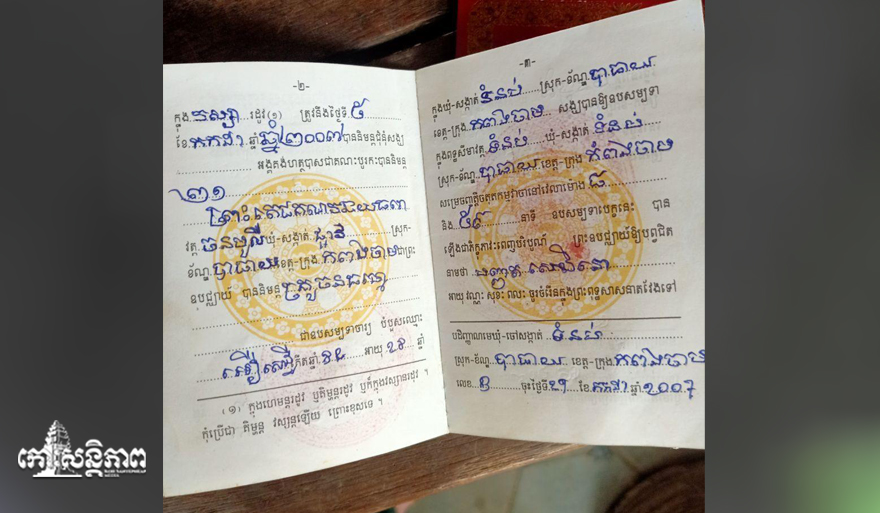 -២-
ក្នុង វស្សា រដូវ (១) ត្រូវនឹងថ្ងៃទី ៥
ខែ កក្កដា ឆ្នាំ ឆ្នាំ ២០០៧ បាននិមន្តជុំនុំសង្ឃ
អង្គគង់ហត្ថបាសជាគណៈបូរកៈបាននិមន្ត
២១
ព្រះ
វត្ត ឃុំ-សង្កាត់ ស្រុក-
ខ័ណ្ឌ បាធាយ ខេត្ត-ក្រុង កំពង់ចាម ជាព្រះ
ឧបជ្ឈាយ៍ បាននិមន្ត
ជាឧបសម្បទាចារ្យ បំបួសឈ្មោះ
កើតឆ្នាំ អាយុ ឆ្នាំ
(១) ក្នុងហេមន្តរដូវ ឬគិម្ហន្តរដូវ ឬក៏ក្នុងវស្សានរដូវ ។
កុំប្រើជា គិម្ហន្ត វស្សន្តឡើយ ព្រោះខុសទេ ។
-៣-
ក្នុងឃុំ-សង្កាត់ ទំនប់ ស្រុក-ខ័ណ្ឌ បាធាយ
ខេត្ត-ក្រុង កំពង់ចាម សង្ឃបានឱ្យឧបសម្បទា
ក្នុងពុទ្ធសីមាវត្ត ទំនប់ ឃុំ-សង្កាត់ ទំនប់
ស្រុក-ខ័ណ្ឌ បាធាយ ខេត្ត-ក្រុង កំពង់ចាម
សម្រេចញត្តិចតុត្ថកម្មវាចានៅវេលាម៉ោង ៨
និង ៥៩ នាទី ឧបសម្បទាបេក្ខនេះ បាន
ឡើងជាភិក្ខុភាវៈពេញបរិបូណ៌ ព្រះឧបជ្ឈាយ៍ឱ្យបព្វជិត
នាមថា
អាយុ វណ្ណៈ សុខៈ ពលៈ ចូរចំរើនក្នុងព្រះពុទ្ធសាសនាតរៀងទៅ
បដិញ្ញាណមេឃុំ-ចៅសង្កាត់ ទំនប់
ស្រុក-ខ័ណ្ឌ បាធាយ ខេត្ត-ក្រុង កំពង់ចាម
លេខ ចុះថ្ងៃទី ២១ ខែ កក្កដា ឆ្នាំ ២០០៧
កោះសន្តិភាព